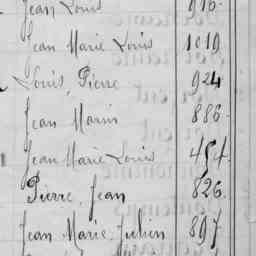 Jean Louis 916.
Jean Marie Louis 1019
Louis, Pierre 924
Jean Marin 886.
Jean Marie Louis 454.
Pierre, Jean 826.
Jean Marie, Julien 897.